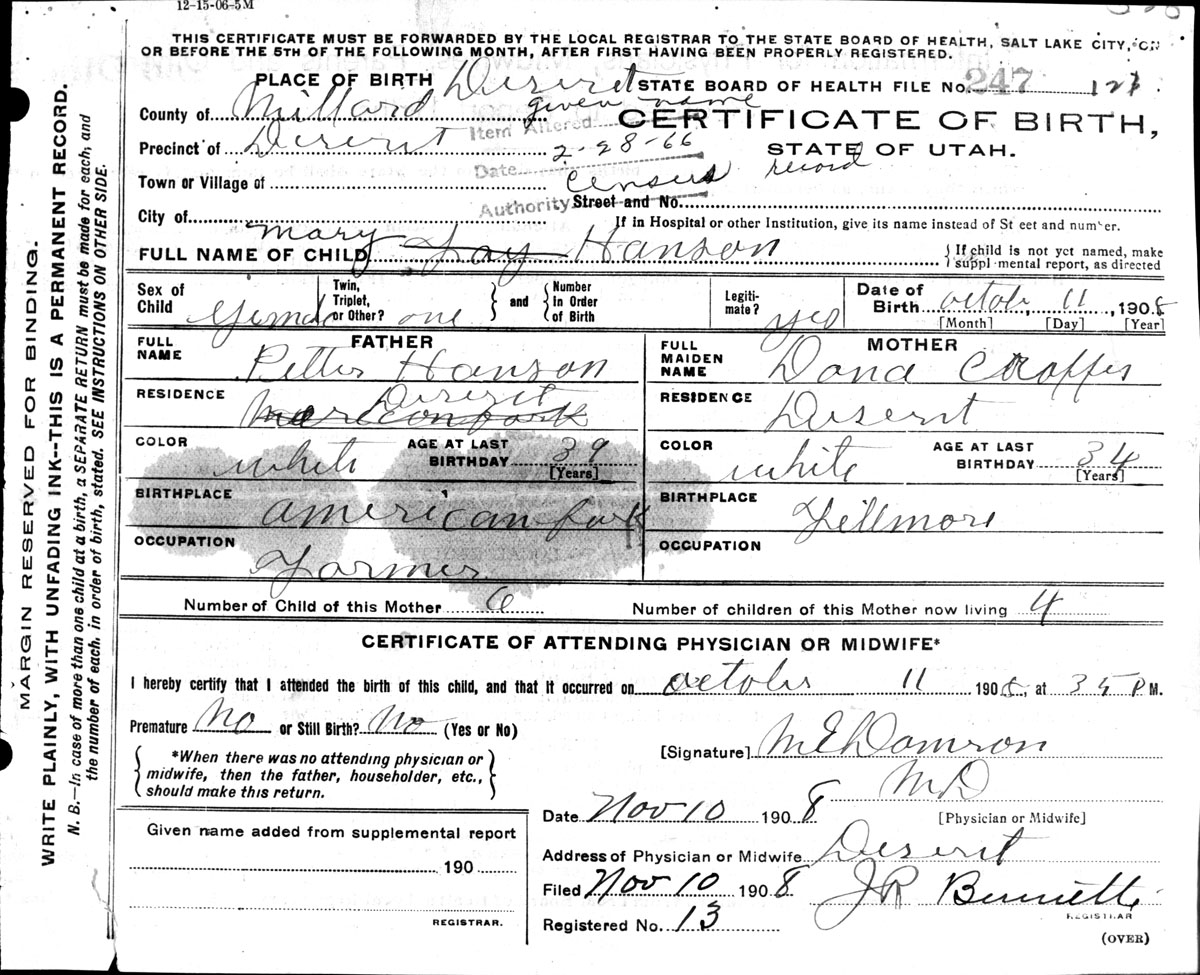 12-15-06-5M
THIS CERTIFICATE MUST BE FORWARDED BY THE LOCAL REGISTRAR TO THE STATE BOARD OF HEALTH, SALT LAKE CITY, ON
OR BEFORE THE 5TH OF THE FOLLOWING MONTH, AFTER FIRST HAVING BEEN PROPERLY REGISTERED.
PLACE OF BIRTH Deseret STATE BOARD OF HEALTH FILE No. 247
County of Millard given name
Item Altered
CERTIFICATE OF BIRTH,
Precinct of Deseret 2-28-66
STATE OF UTAH.
Date
Town or Village of census record
Authority Street and No.
City of If in Hospital or other Institution, give its name instead of St eet and number.
FULL NAME OF CHILD Mary Fay Hanson { If child is not yet named, make
suppl mental report, as directed
Sex of Child Female Twin, Triplet, or Other? one and Number In Order of Birth Legiti-mate? yes Date of Birth October 11, 1908
[Month] [Day] [Year]
FATHER MOTHER
FULL NAME Petter Hanson FULL MAIDEN NAME Dona
RESIDENCE Deseret RESIDENCE Desernt
COLOR white AGE AT LAST BIRTHDAY 39 COLOR white AGE AT LAST BIRTHDAY 34
[Years] [Years]
BIRTHPLACE american fork BIRTHPLACE Fillmore
OCCUPATION Farmer OCCUPATION
Number of Child of this Mother 6 Number of children of this Mother now living 4
CERTIFICATE OF ATTENDING PHYSICIAN OR MIDWIFE*
I hereby certify that I attended the birth of this child, and that it occurred on October 11 1908, at 35 P M.
Premature No or Still Birth? No (Yes or No)
[Signature] M E Damron
*When there was no attending physician or
midwife, then the father, householder, etc.,
should make this return.
M D
Date Nov 10 1908 [Physician or Midwife]
Given name added from supplemental report
190
REGISTRAR.
Address of Physician or Midwife Deserit
Filed Nov 10 1908 J R Bennett
REGISTRAR
Registered No. 13
(OVER)
MARGIN RESERVED FOR BINDING.
WRITE PLAINLY, WITH UNFADING INK--THIS IS A PERMANENT RECORD.
N. B.—In case of more than one child at a birth, a SEPARATE RETURN must be made for each, and
the number of each, in order of birth, stated. SEE INSTRUCTIONS ON OTHER SIDE.